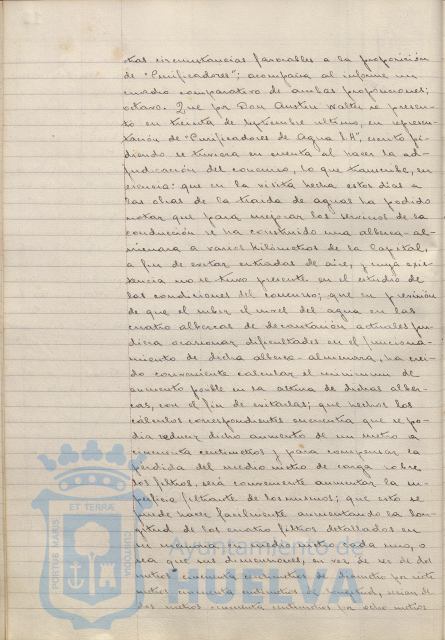 tras circunstancias favorables a la proposición
de "Purificadores"; acompaña al informe un
cuadro comparativo de ambas proposiciones;
octavo. Que por Don Austin Walter se presen-
tó en treinta de septiembre último, en represen-
tación de "Purificadores de Agua S.A", escrito pi-
diendo se tuviera en cuenta al hacer la ad-
judicación del concurso, lo que transcribe, en
esencia: que en la visita hecha estos días a
las obras de la traida de aguas ha podido
notar que para mejorar los servicios de la
conducción se ha construido una alberca-al-
menara a varios kilómetros de la Capital,
a fin de evitar entradas de aire, y cuya exis-
tencia no se tuvo presente en el estudio de
las condiciones del concurso; que en previsión
de que el subir el nivel del agua en las
cuatro albercas de decantación actuales pu-
diera ocasionar dificultades en el funciona-
miento de dicha alberca-almenara, ha crei-
do conveniente calcular el minimum de
aumento posible en la altura de dichas alber-
cas, con el fin de evitarlas; que hechos los
cálculos correspondientes encuentra que se po-
dia reducir dicho aumento de un metro a
cincuenta centímetros y para compensar la
pérdida del medio metro de carga sobre
los filtros, será conveniente aumentar la su-
perficie filtrante de los mismos; que esto se
puede hacer facilmente aumentando la lon-
gitud de los cuatro filtros detallados en
su memoria en medio metro cada uno, o
sea que sus dimensiones, en vez de ser de dos
metros cincuenta centímetros de diametro por siete
metros cincuenta centímetros de longitud, serían de
dos metros cincuenta centímetros por ocho metros
PORTUS MARIS
ET TERRAE
CUSTODIA
Ayuntamiento de
HUELVA